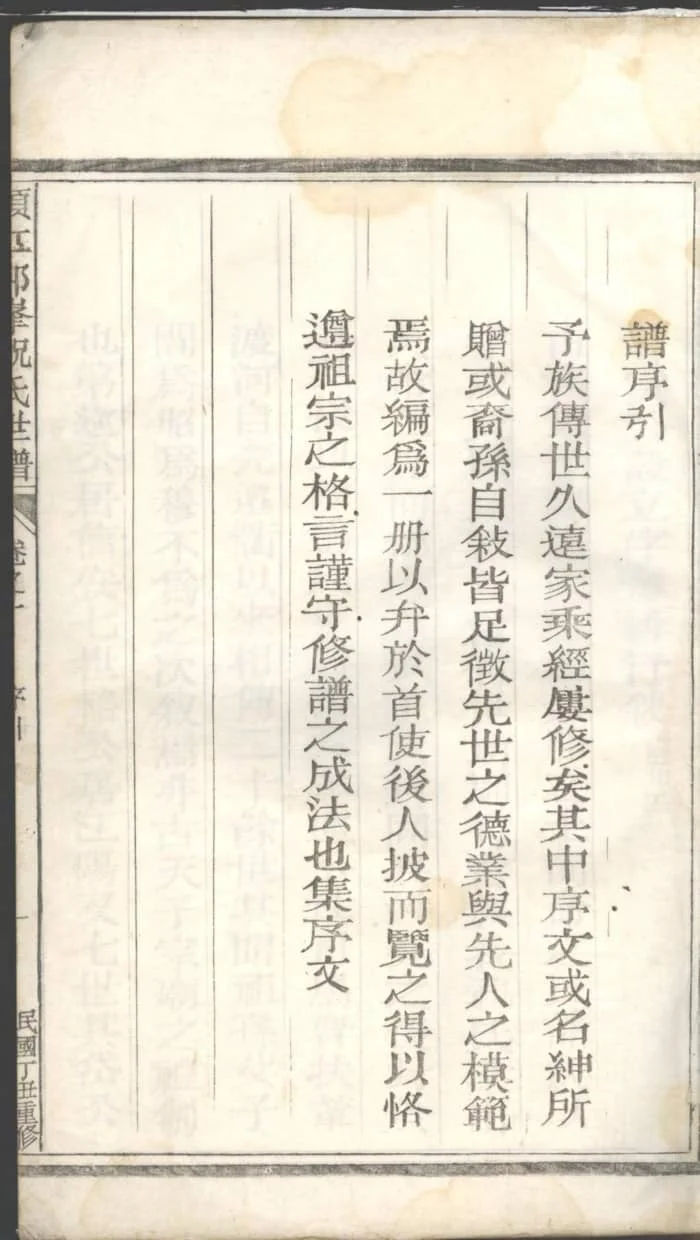 譜序引
予族傳世久遠家乘經屢修矣其中序文或名紳所
贈或裔孫自敍皆足徵先世之德業與先人之模範
焉故編爲一册以弁於首使後人披而覽之得以恪
遵祖宗之格言謹守修譜之成法也集序文
峯祝氏世譜
卷之
序引
一
民國丁丑重修